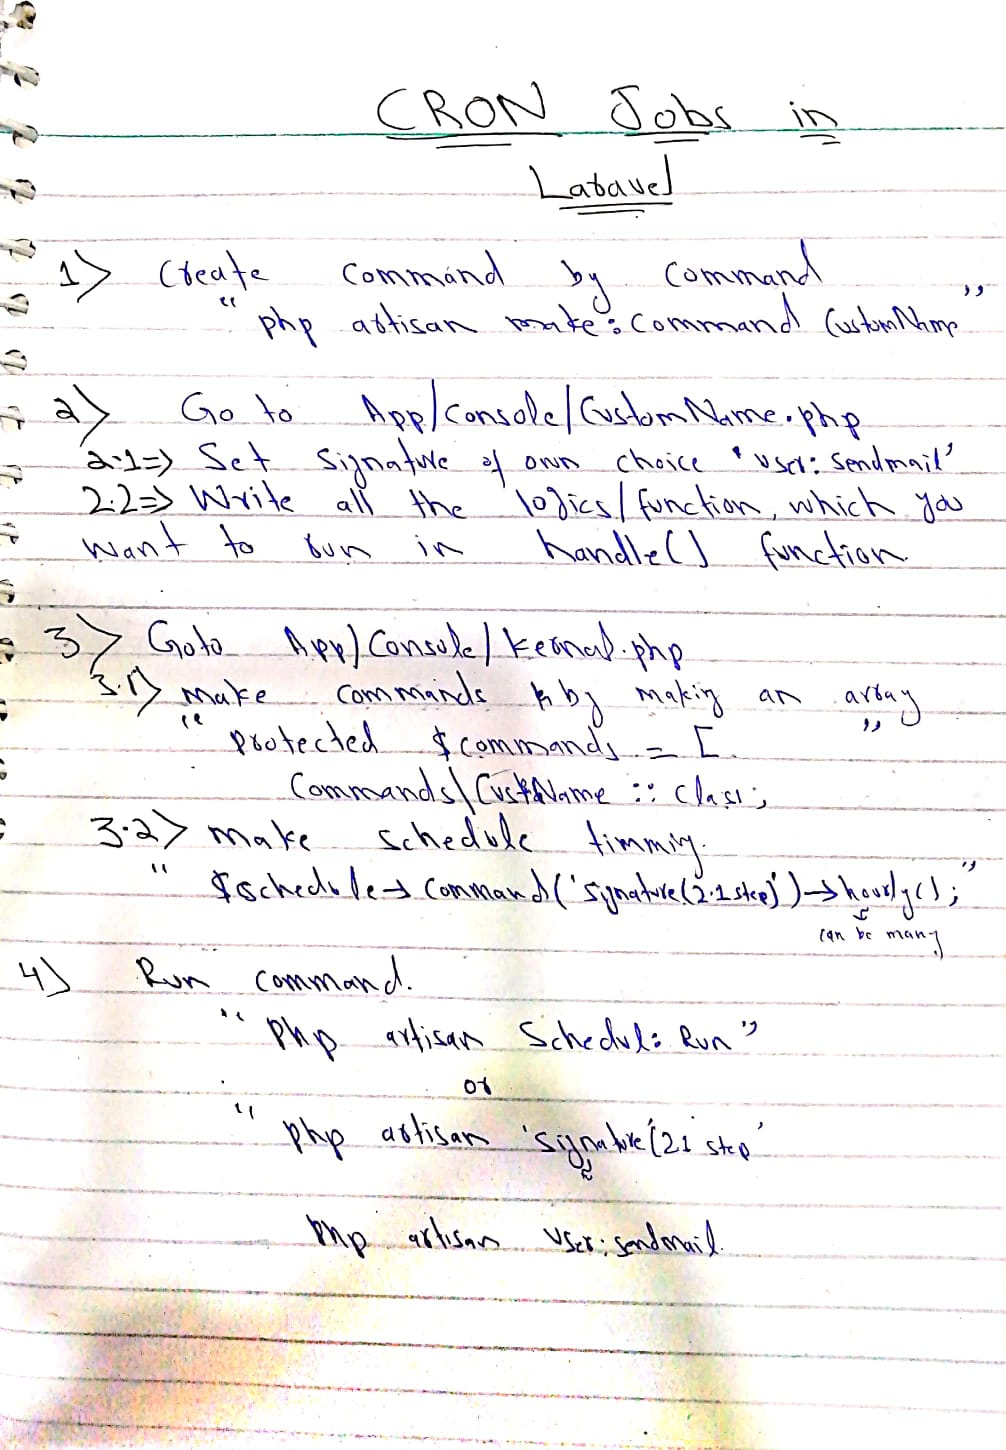 CRON Jobs in
Laravel
1) Create Command by Command
" php artisan make:Command CustomName "
2) Go to App/Console/CustomName.php
2.1=> Set Signature of own choice 'user:sendmail'
2.2=> Write all the logics/function, which you
want to run in handle() function.
3) Goto App/Console/kernal.php
3.1) make commands by making an array
" protected $commands = [ "
Commands\CustName :: class;
3.2) make schedule timmig.
" $schedule→command('signature(2.1 step)')→hourly(); "
can be many
4) Run command.
" php artisan Schedul: Run "
or
" php artisan 'signature(2.1 step'
php artisan user:sendmail.